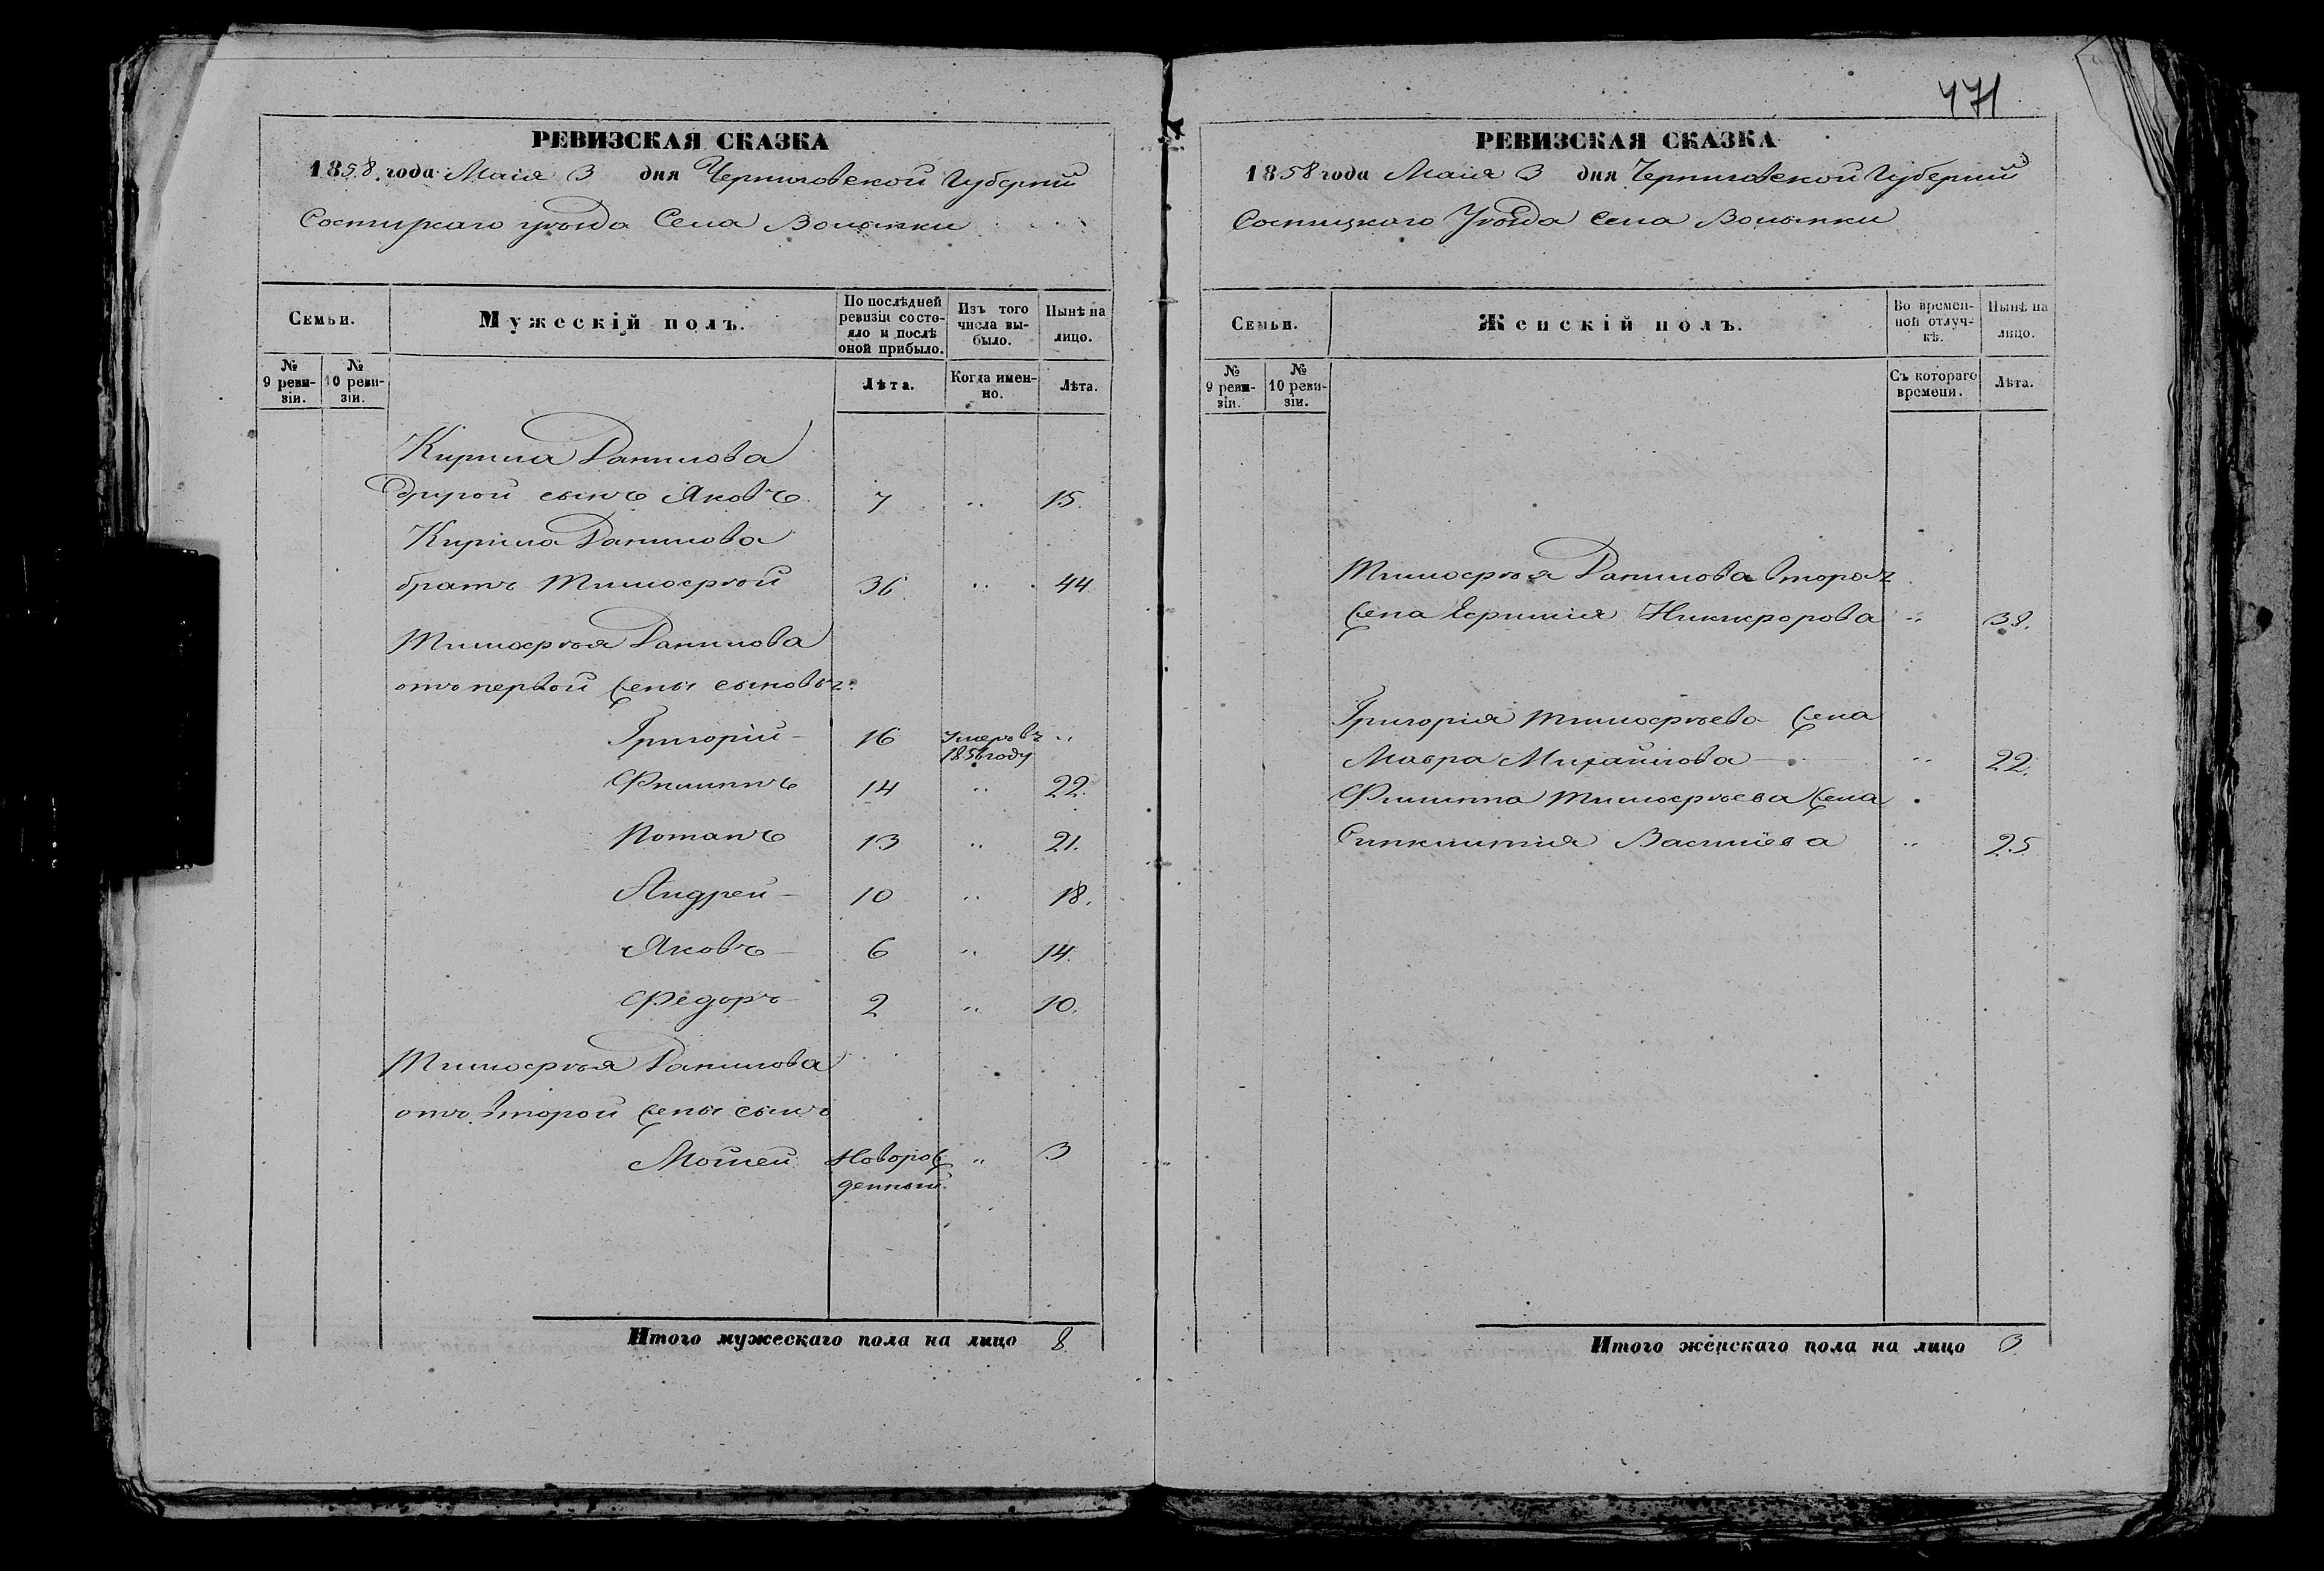 РЕВИЗСКАЯ СКАЗКА
1858. года Маія 3 дня Черниговской Губерніи
Состицкаго уѣзда Села Волынки
Семьи.
Мужескій полъ.
По послѣдней ревизіи состояло и послѣ оной прибыло.
Изъ того числа выбыло.
Нынѣ на лицо.
№ 9 ревизіи.
№ 10 ревизіи.
Лѣта.
Когда именно.
Лѣта.
Кирила Данилова
другой сынъ Яковъ. 7 „ 15.
Кирила Данилова
братъ Тимофѣй 36 „ 44
Тимофѣя Данилова
отъ первой жены сыновья:
Григорій – 16 Умеръ въ 1856 году „
Филиппъ 14 „ 22.
Потапъ 13 „ 21.
Андрей – 10 „ 18.
Яковъ – 6 „ 14.
Федоръ – 2 „ 10.
Тимофѣя Данилова
отъ второй жены сынъ
Мойсей Новорожденный. „ 3
Итого мужескаго пола на лицо 8.
471
РЕВИЗСКАЯ СКАЗКА
1858 года Маія 3 дня Черниговской Губерніи
Состицкаго Уѣзда Села Волынки
Семьи.
Женскій полъ.
Во временной отлучкѣ.
Нынѣ на лицо.
№ 9 ревизіи.
№ 10 ревизіи.
Съ котораго времени.
Лѣта.
Тимофѣя Данилова вторая
жена Никифорова „ 38.
Григорія Тимофѣева жена
Мавра Михайлова – „ 22.
Филиппа Тимофѣева жена
Синклитія Васильева „ 25.
Итого женскаго пола на лицо 3